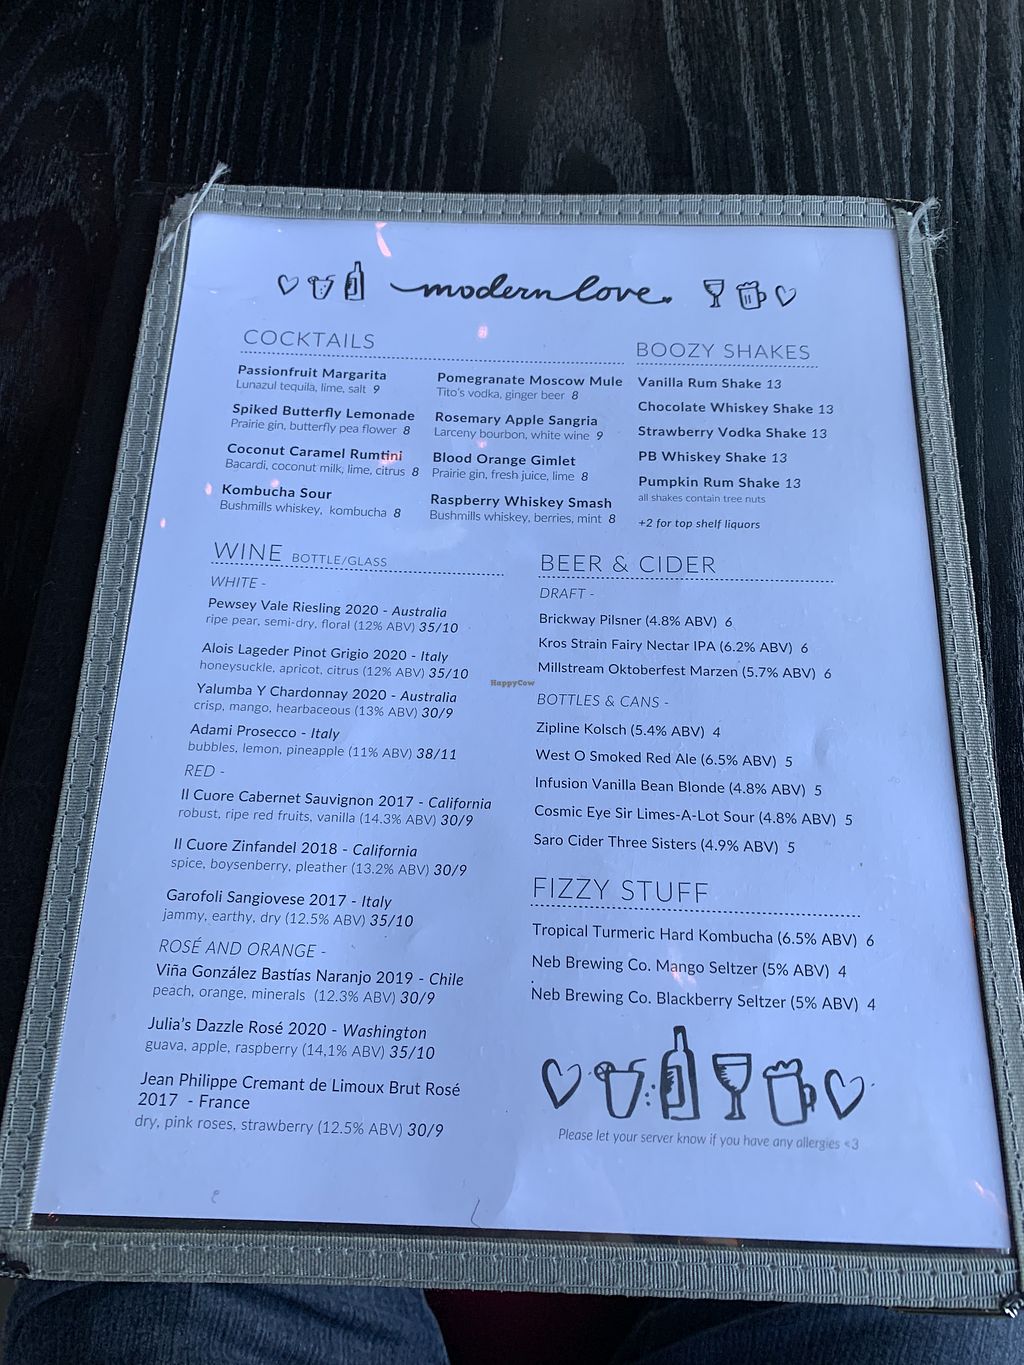 modern love.
COCKTAILS
Passionfruit Margarita
Lunazul tequila, lime, salt 9
Spiked Butterfly Lemonade
Prairie gin, butterfly pea flower 8
Coconut Caramel Rumtini
Bacardi, coconut milk, lime, citrus 8
Kombucha Sour
Bushmills whiskey, kombucha 8
Pomegranate Moscow Mule
Tito's vodka, ginger beer 8
Rosemary Apple Sangria
Larceny bourbon, white wine 9
Blood Orange Gimlet
Prairie gin, fresh juice, lime 8
Raspberry Whiskey Smash
Bushmills whiskey, berries, mint 8
BOOZY SHAKES
Vanilla Rum Shake 13
Chocolate Whiskey Shake 13
Strawberry Vodka Shake 13
PB Whiskey Shake 13
Pumpkin Rum Shake 13
all shakes contain tree nuts
+2 for top shelf liquors
WINE BOTTLE/GLASS
WHITE -
Pewsey Vale Riesling 2020 - Australia
ripe pear, semi-dry, floral (12% ABV) 35/10
Alois Lageder Pinot Grigio 2020 - Italy
honeysuckle, apricot, citrus (12% ABV) 35/10
Yalumba Y Chardonnay 2020 - Australia
crisp, mango, hearbaceous (13% ABV) 30/9
Adami Prosecco - Italy
bubbles, lemon, pineapple (11% ABV) 38/11
RED -
Il Cuore Cabernet Sauvignon 2017 - California
robust, ripe red fruits, vanilla (14.3% ABV) 30/9
Il Cuore Zinfandel 2018 - California
spice, boysenberry, pleather (13.2% ABV) 30/9
Garofoli Sangiovese 2017 - Italy
jammy, earthy, dry (12.5% ABV) 35/10
ROSÉ AND ORANGE -
Viña González Bastías Naranjo 2019 - Chile
peach, orange, minerals (12.3% ABV) 30/9
Julia's Dazzle Rosé 2020 - Washington
guava, apple, raspberry (14,1% ABV) 35/10
Jean Philippe Cremant de Limoux Brut Rosé
2017 - France
dry, pink roses, strawberry (12.5% ABV) 30/9
BEER & CIDER
DRAFT -
Brickway Pilsner (4.8% ABV) 6
Kros Strain Fairy Nectar IPA (6.2% ABV) 6
Millstream Oktoberfest Marzen (5.7% ABV) 6
BOTTLES & CANS -
Zipline Kolsch (5.4% ABV) 4
West O Smoked Red Ale (6.5% ABV) 5
Infusion Vanilla Bean Blonde (4.8% ABV) 5
Cosmic Eye Sir Limes-A-Lot Sour (4.8% ABV) 5
Saro Cider Three Sisters (4.9% ABV) 5
FIZZY STUFF
Tropical Turmeric Hard Kombucha (6.5% ABV) 6
Neb Brewing Co. Mango Seltzer (5% ABV) 4
Neb Brewing Co. Blackberry Seltzer (5% ABV) 4
Please let your server know if you have any allergies <3
HappyCow